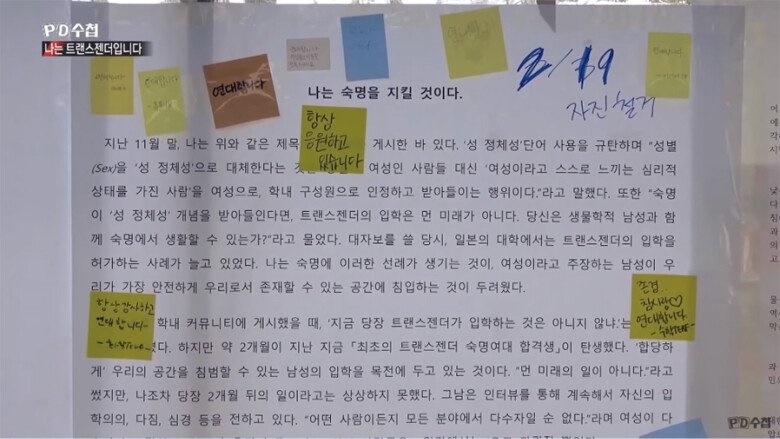 PD수첩
나는 트랜스젠더입니다
연대합니다
연대합니다
2/19
자진철거
나는 숙명을 지킬 것이다.
항상
응원하고
있습니다
지난 11월 말, 나는 위와 같은 제목 게시한 바 있다. '성 정체성'단어 사용을 규탄하며 "성별
(Sex)을 '성 정체성'으로 대체한다는 여성인 사람들 대신 '여성이라고 스스로 느끼는 심리적
상태를 가진 사람'을 여성으로, 학내 구성원으로 인정하고 받아들이는 행위이다."라고 말했다. 또한 "숙명
이 '성 정체성' 개념을 받아들인다면, 트랜스젠더의 입학은 먼 미래가 아니다. 당신은 생물학적 남성과 함
께 숙명에서 생활할 수 있는가?"라고 물었다. 대자보를 쓸 당시, 일본의 대학에서는 트랜스젠더의 입학을
허가하는 사례가 늘고 있었다. 나는 숙명에 이러한 선례가 생기는 것이, 여성이라고 주장하는 남성이 우
리가 가장 안전하게 우리로서 존재할 수 있는 공간에 침입하는 것이 두려웠다.
항상 감사하고
연대합니다
존경..
참사랑♡
연대합니다.
학내 커뮤니티에 게시했을 때, '지금 당장 트랜스젠더가 입학하는 것은 아니지 않냐.'는
였다. 하지만 약 2개월이 지난 지금 「최초의 트랜스젠더 숙명여대 합격생」이 탄생했다. '합당하
게' 우리의 공간을 침범할 수 있는 남성의 입학을 목전에 두고 있는 것이다. "먼 미래의 일이 아니다."라고
썼지만, 나조차 당장 2개월 뒤의 일이라고는 상상하지 못했다. 그남은 인터뷰를 통해 계속해서 자신의 입
학의의, 다짐, 심경 등을 전하고 있다. "어떤 사람이든지 모든 분야에서 다수자일 순 없다."라며 여성이 다
PD수첩